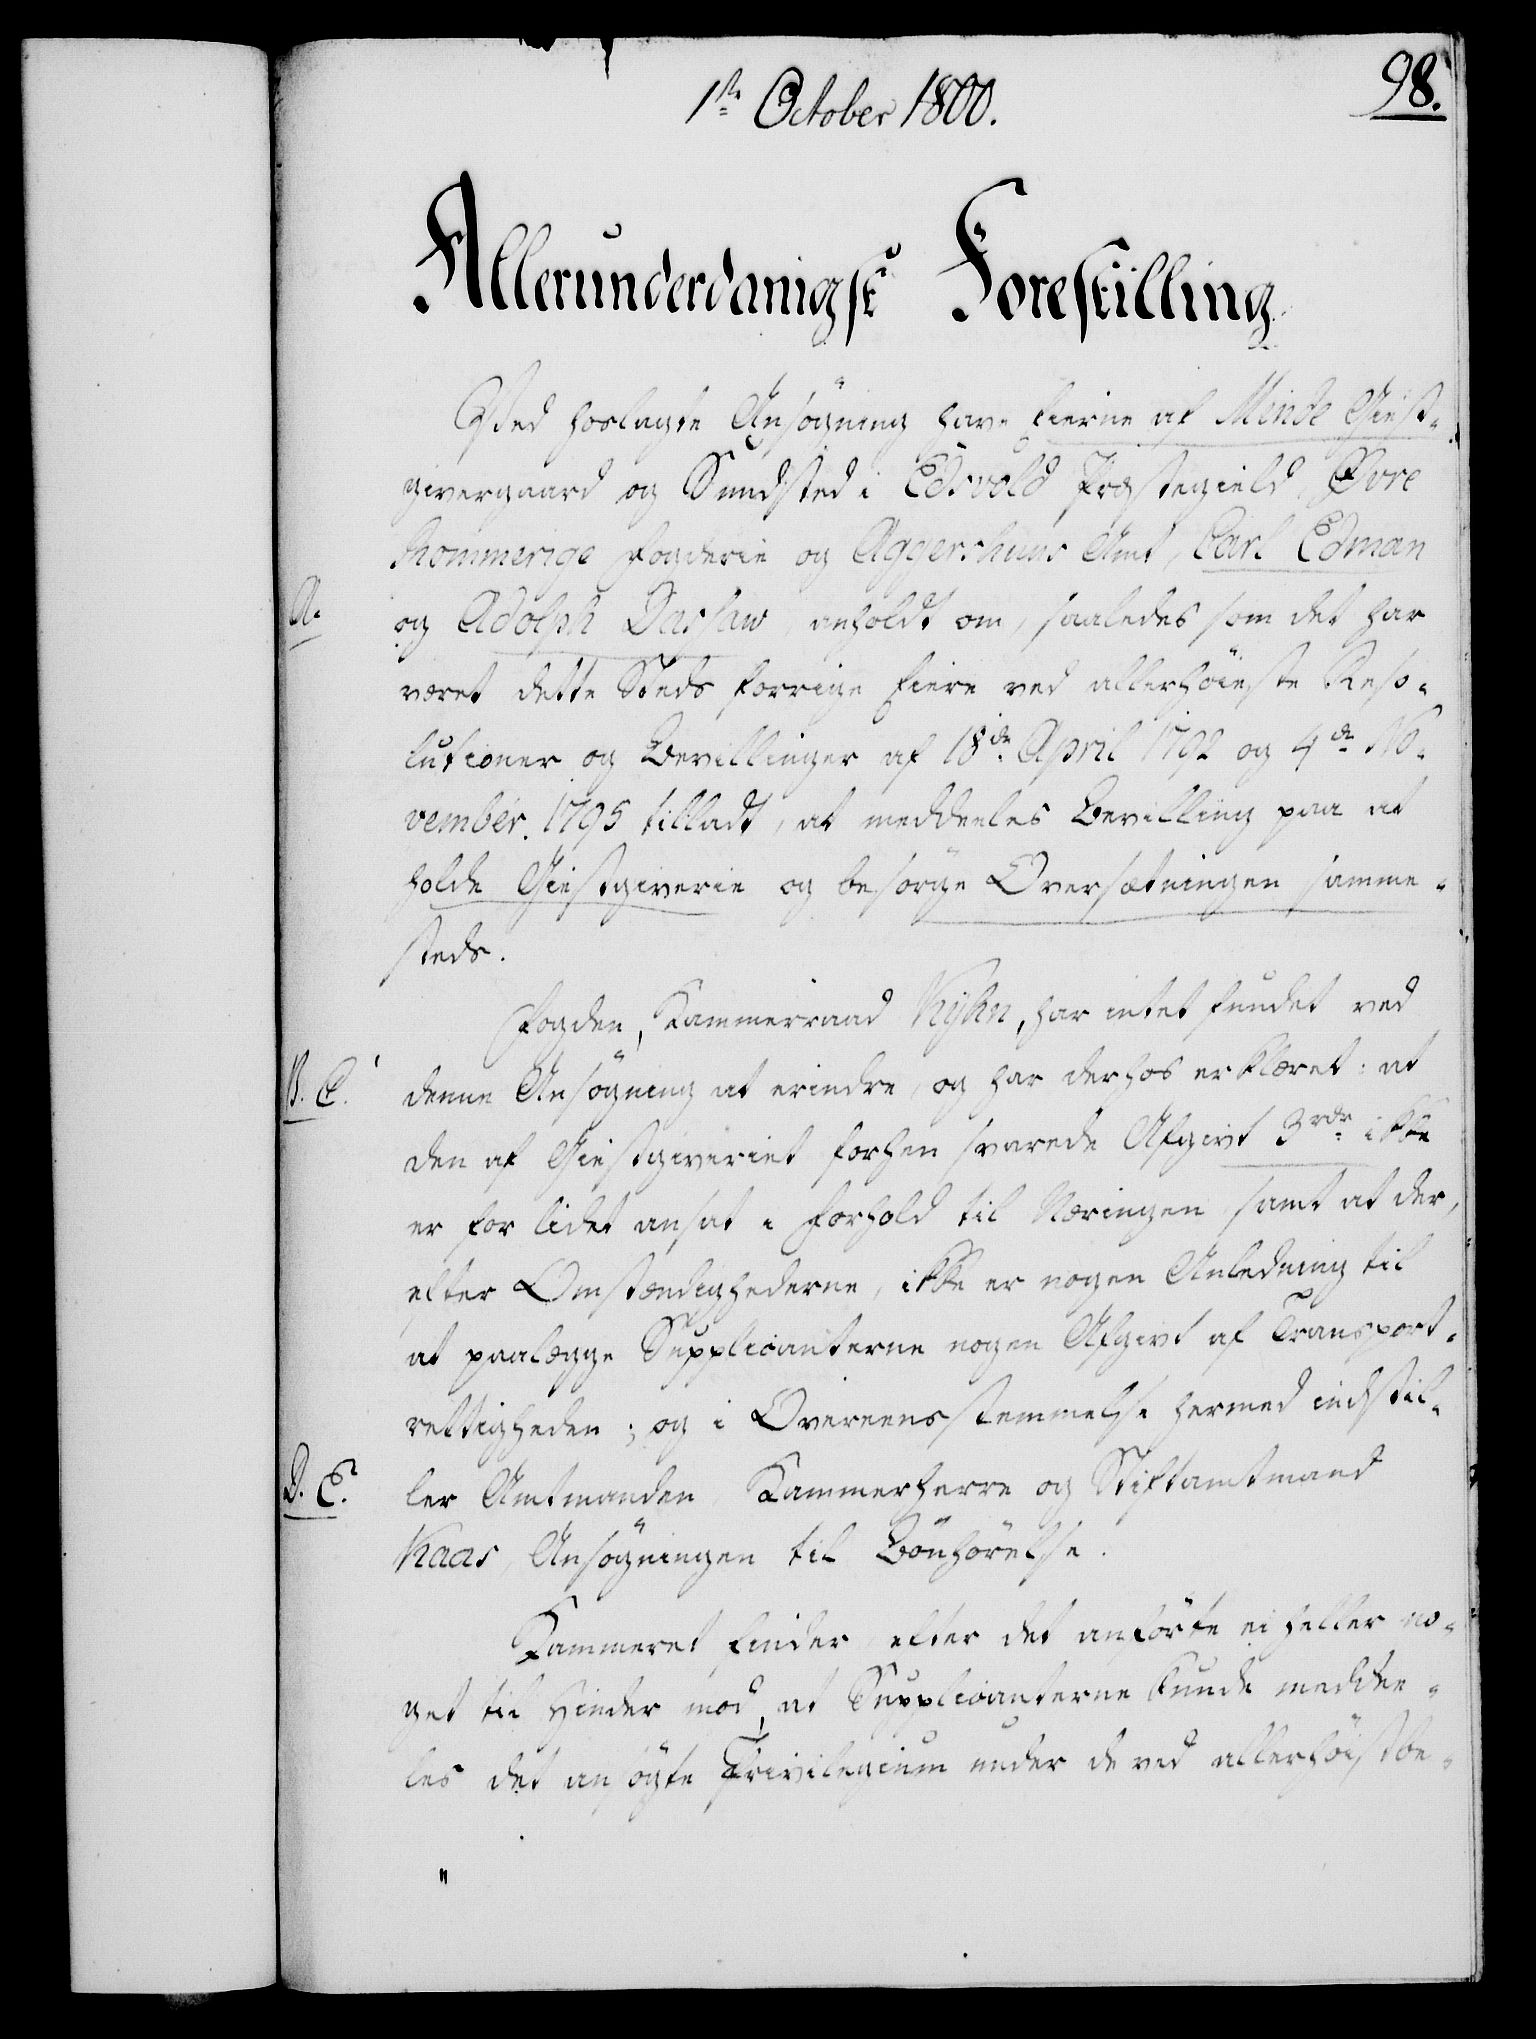 98.
1ste October 1800.
Allerunderdanigst Forestilling
Ved hoslagte Ansøgning have Eierne af Minde Giest-
givergaard og Sundsted i Edsvold Præstegield, Øvre
Rommerige Fogderie og Aggershuus Amt, Carl Edman
A.
og Adolph Dassaw, anholdt om, saaledes som det har
været dette Steds forrige Eiere ved allerhöieste Reso-
lutioner og Bevillinger af 18de April 1792 og 4de No-
vember 1795 tilladt, at meddeeles Bevilling paa at
holde Giestgiverie og besørge Oversætningen samme-
steds.
Fogden, Kammerraad Kyhn, har intet fundet ved
B. C.
denne Ansøgning at erindre, og har derhos erklæret: at
den af Giestgiveriet forhen svarede Afgivt 3 rdr ikke
er for lidet ansat i Forhold til Næringen samt at der,
efter Omstændighederne, ikke er nogen Anledning til
at paalægge Supplicanterne nogen Afgivt af Transport-
rettigheden; og i Overeensstemmelse hermed indstil-
D. E.
ler Amtmanden Kammerherre og Stiftamtmand
Kaas, Ansøgningen til Bönhörelse.
Kammeret finder efter det anförte ei heller no-
get til Hinder mod, at Supplicanterne kunde meddee-
les det ansøgte Privilegium under de ved allerhöistbe-